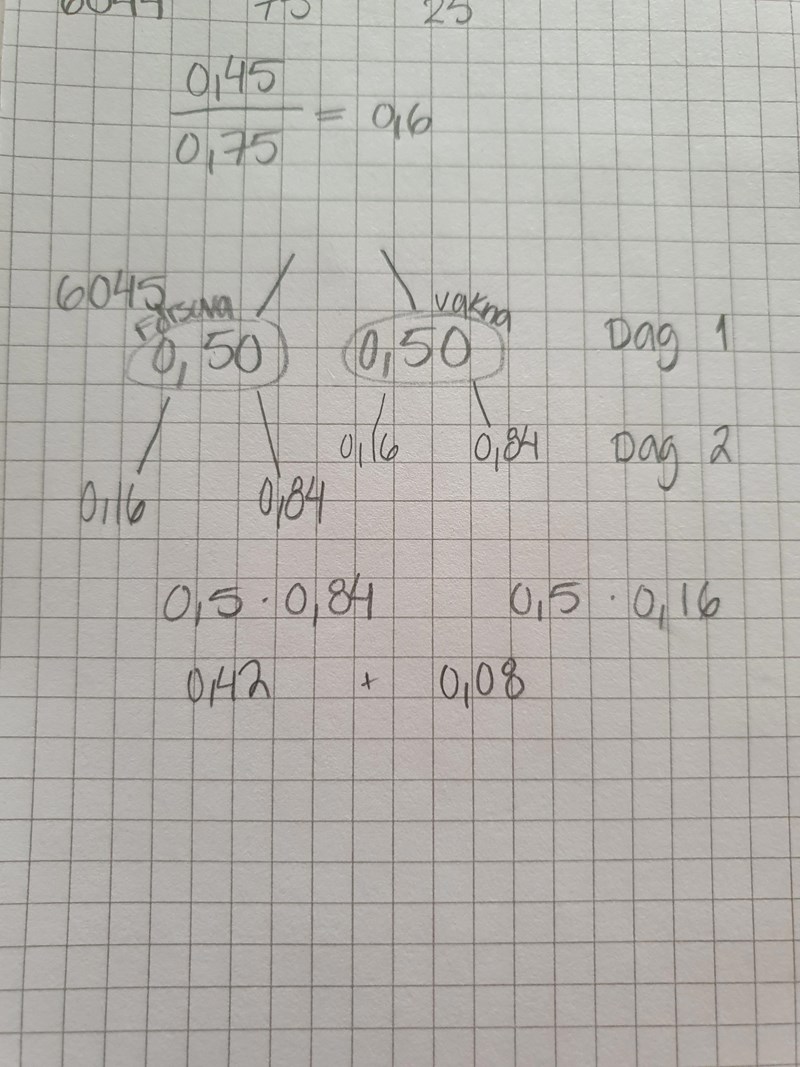 6044 75 25
0,45
0,75
= 0,6
6045
Försova vakna
0,50 0,50 Dag 1
0,16 0,84 Dag 2
0,16 0,84
0,5 · 0,84 0,5 · 0,16
0,42 + 0,08